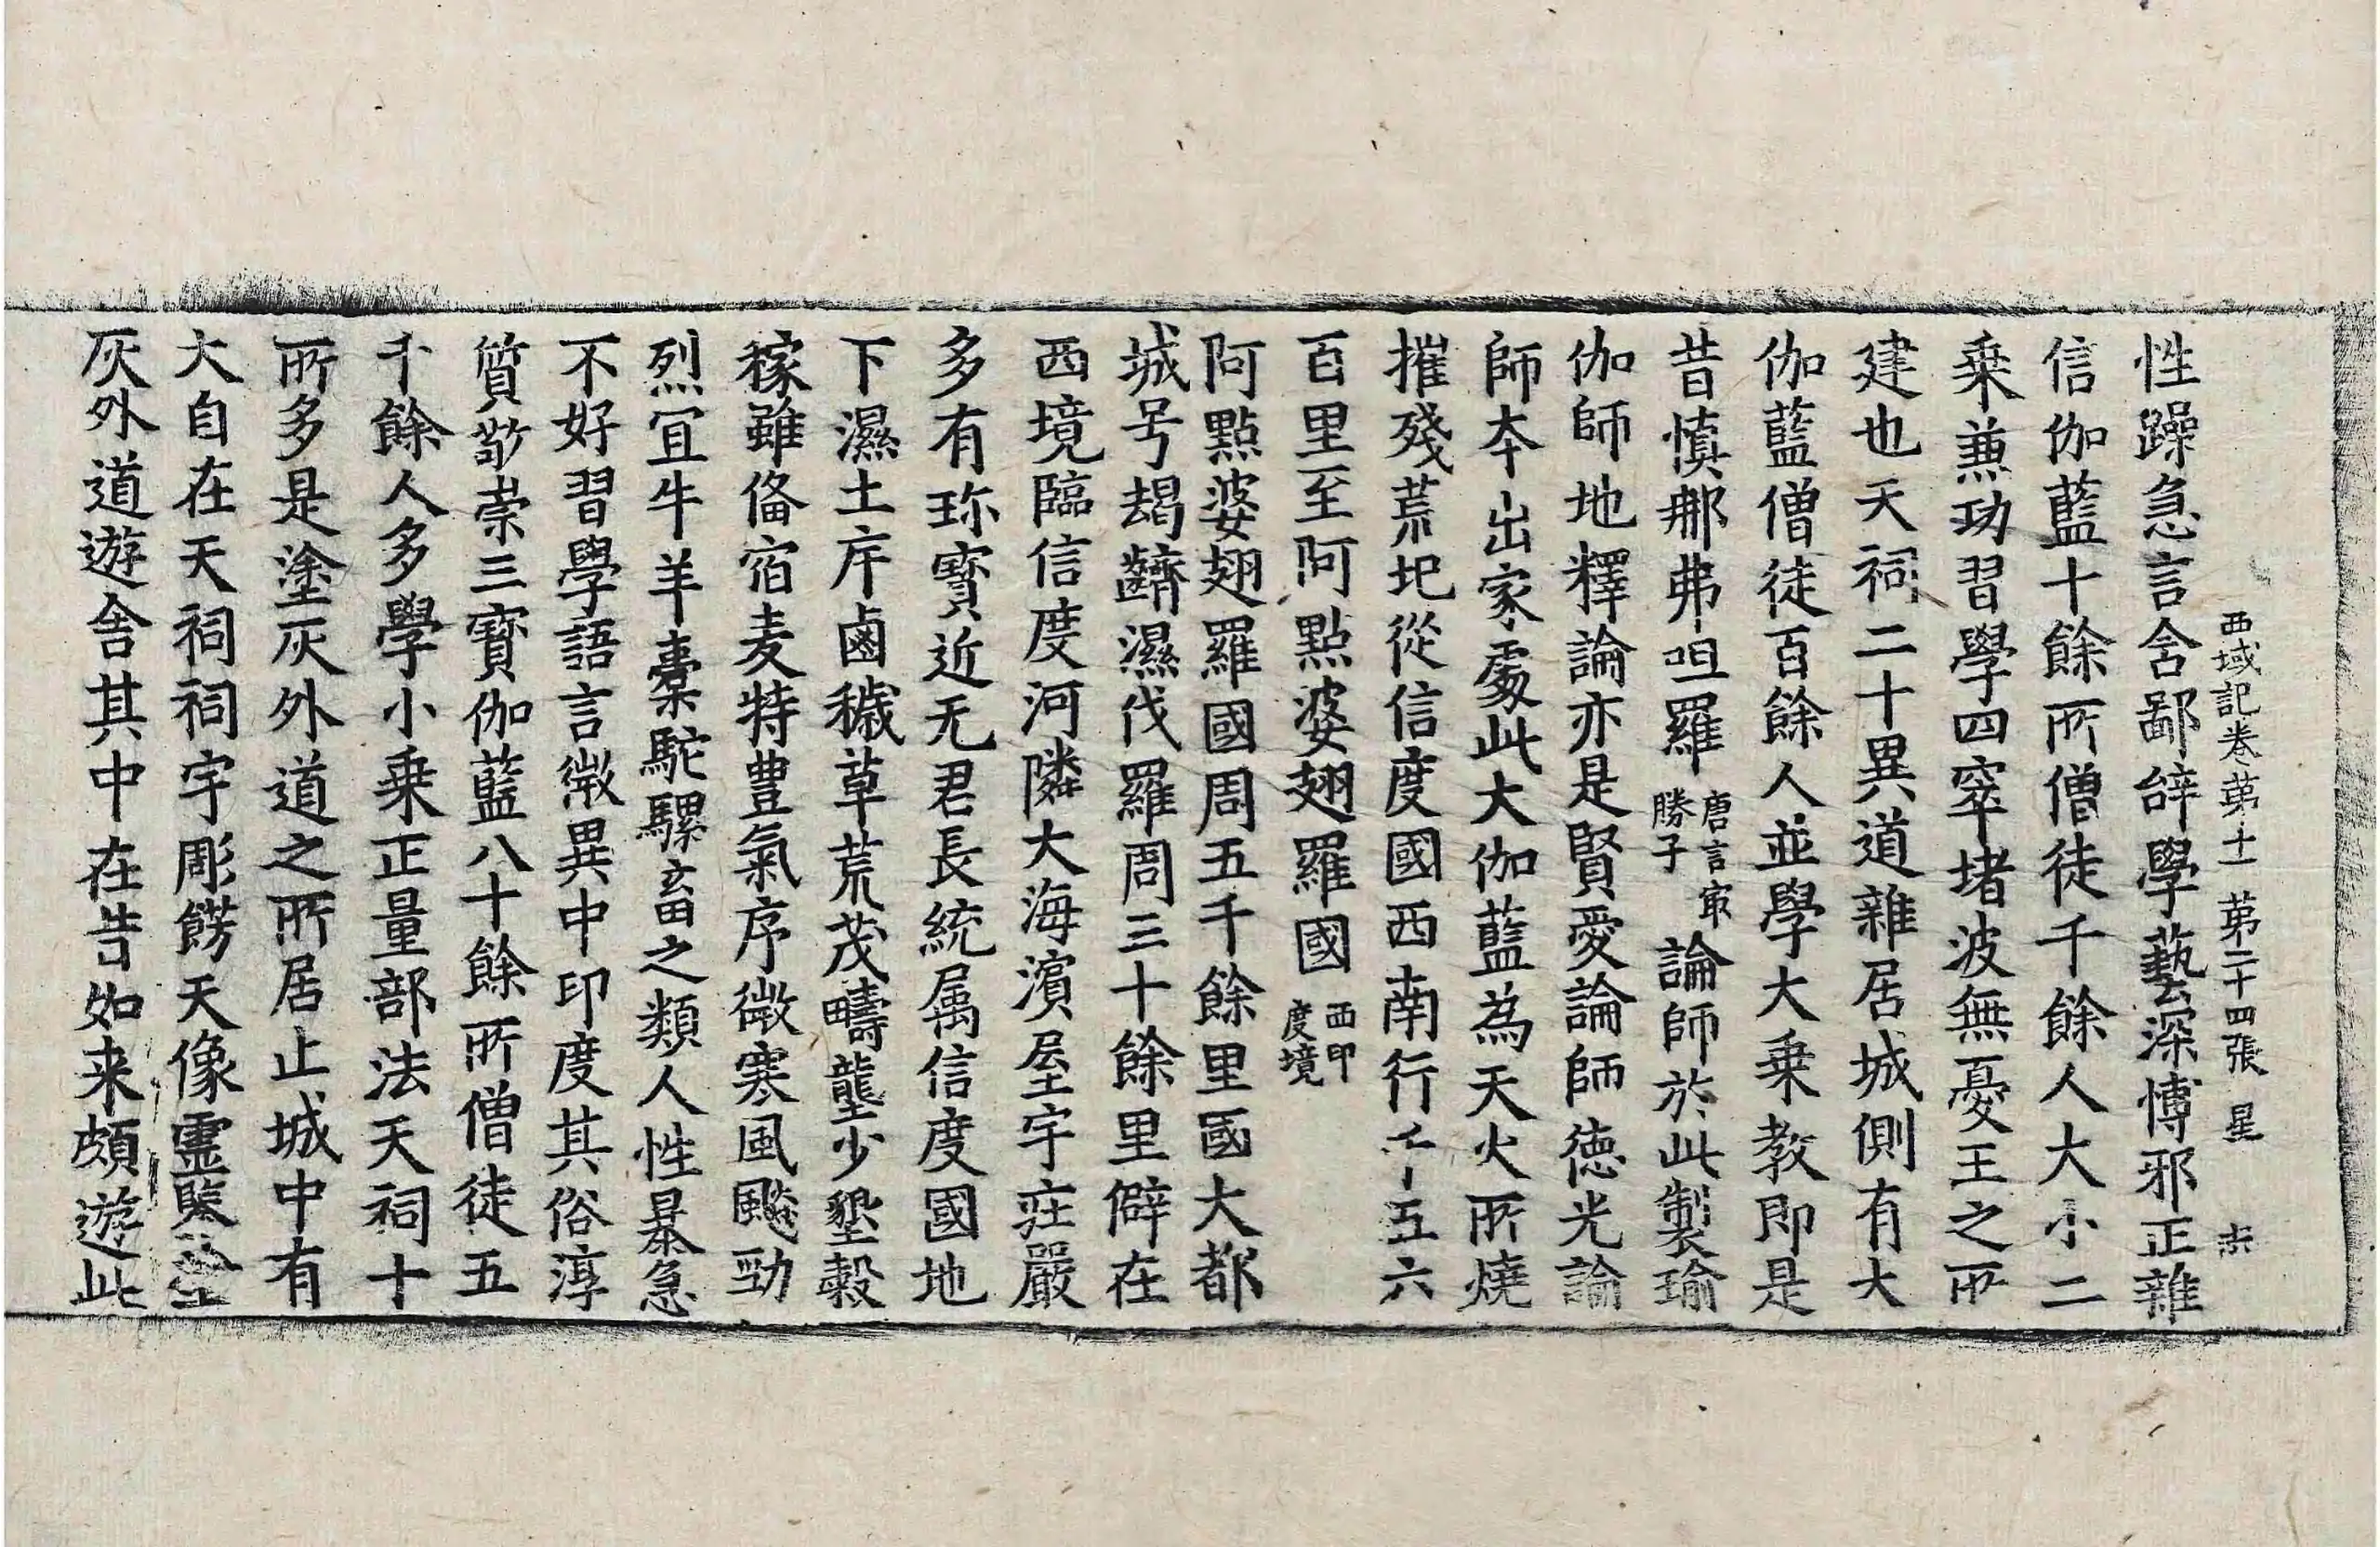 西域記卷苐十一 苐二十四張 星
性躁急言含鄙辝學藝深博邪正雜
信伽藍十餘所僧徒千餘人大小二
乗兼功習學四窣堵波無憂王之所
建也天祠二十異道雜居城側有大
伽藍僧徒百餘人並學大乗教即是
昔慎那弗呾羅唐言㝡勝子論師於此製瑜
伽師地釋論亦是賢愛論師德光論
師夲出家處此大伽藍為天火所燒
摧殘荒圮從信度國西南行千五六
百里至阿點婆翅羅國西印度境
阿點婆翅羅國周五千餘里國大都
城号朅䶩濕伐羅周三十餘里僻在
西境臨信度河隣大海濱屋宇莊嚴
多有珎寶近无君長統属信度國地
下濕土斥鹵穢草荒茂疇壟少墾穀
稼雖俻宿麦特豊氣序微寒風飈勁
烈冝牛羊橐駝騾畜之類人性暴急
不好習學語言微異中印度其俗淳
質敬崇三寳伽藍八十餘所僧徒五
千餘人多學小乗正量部法天祠十
所多是塗灰外道之所居止城中有
大自在天祠祠宇彫餝天像霊鑒塗
灰外道遊舍其中在昔如来頗遊此